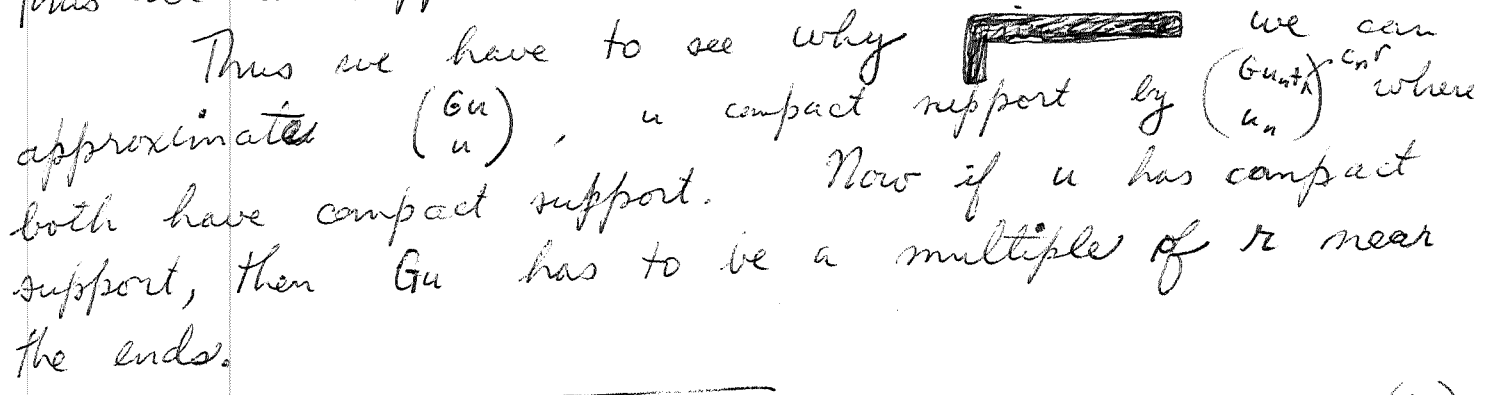 Thus we have to see why we can
approximate (Gu u), u compact support by (Gu_n + c_n r u_n) where
both have compact support. Now if u has compact
support, then Gu has to be a multiple of r near
the ends.